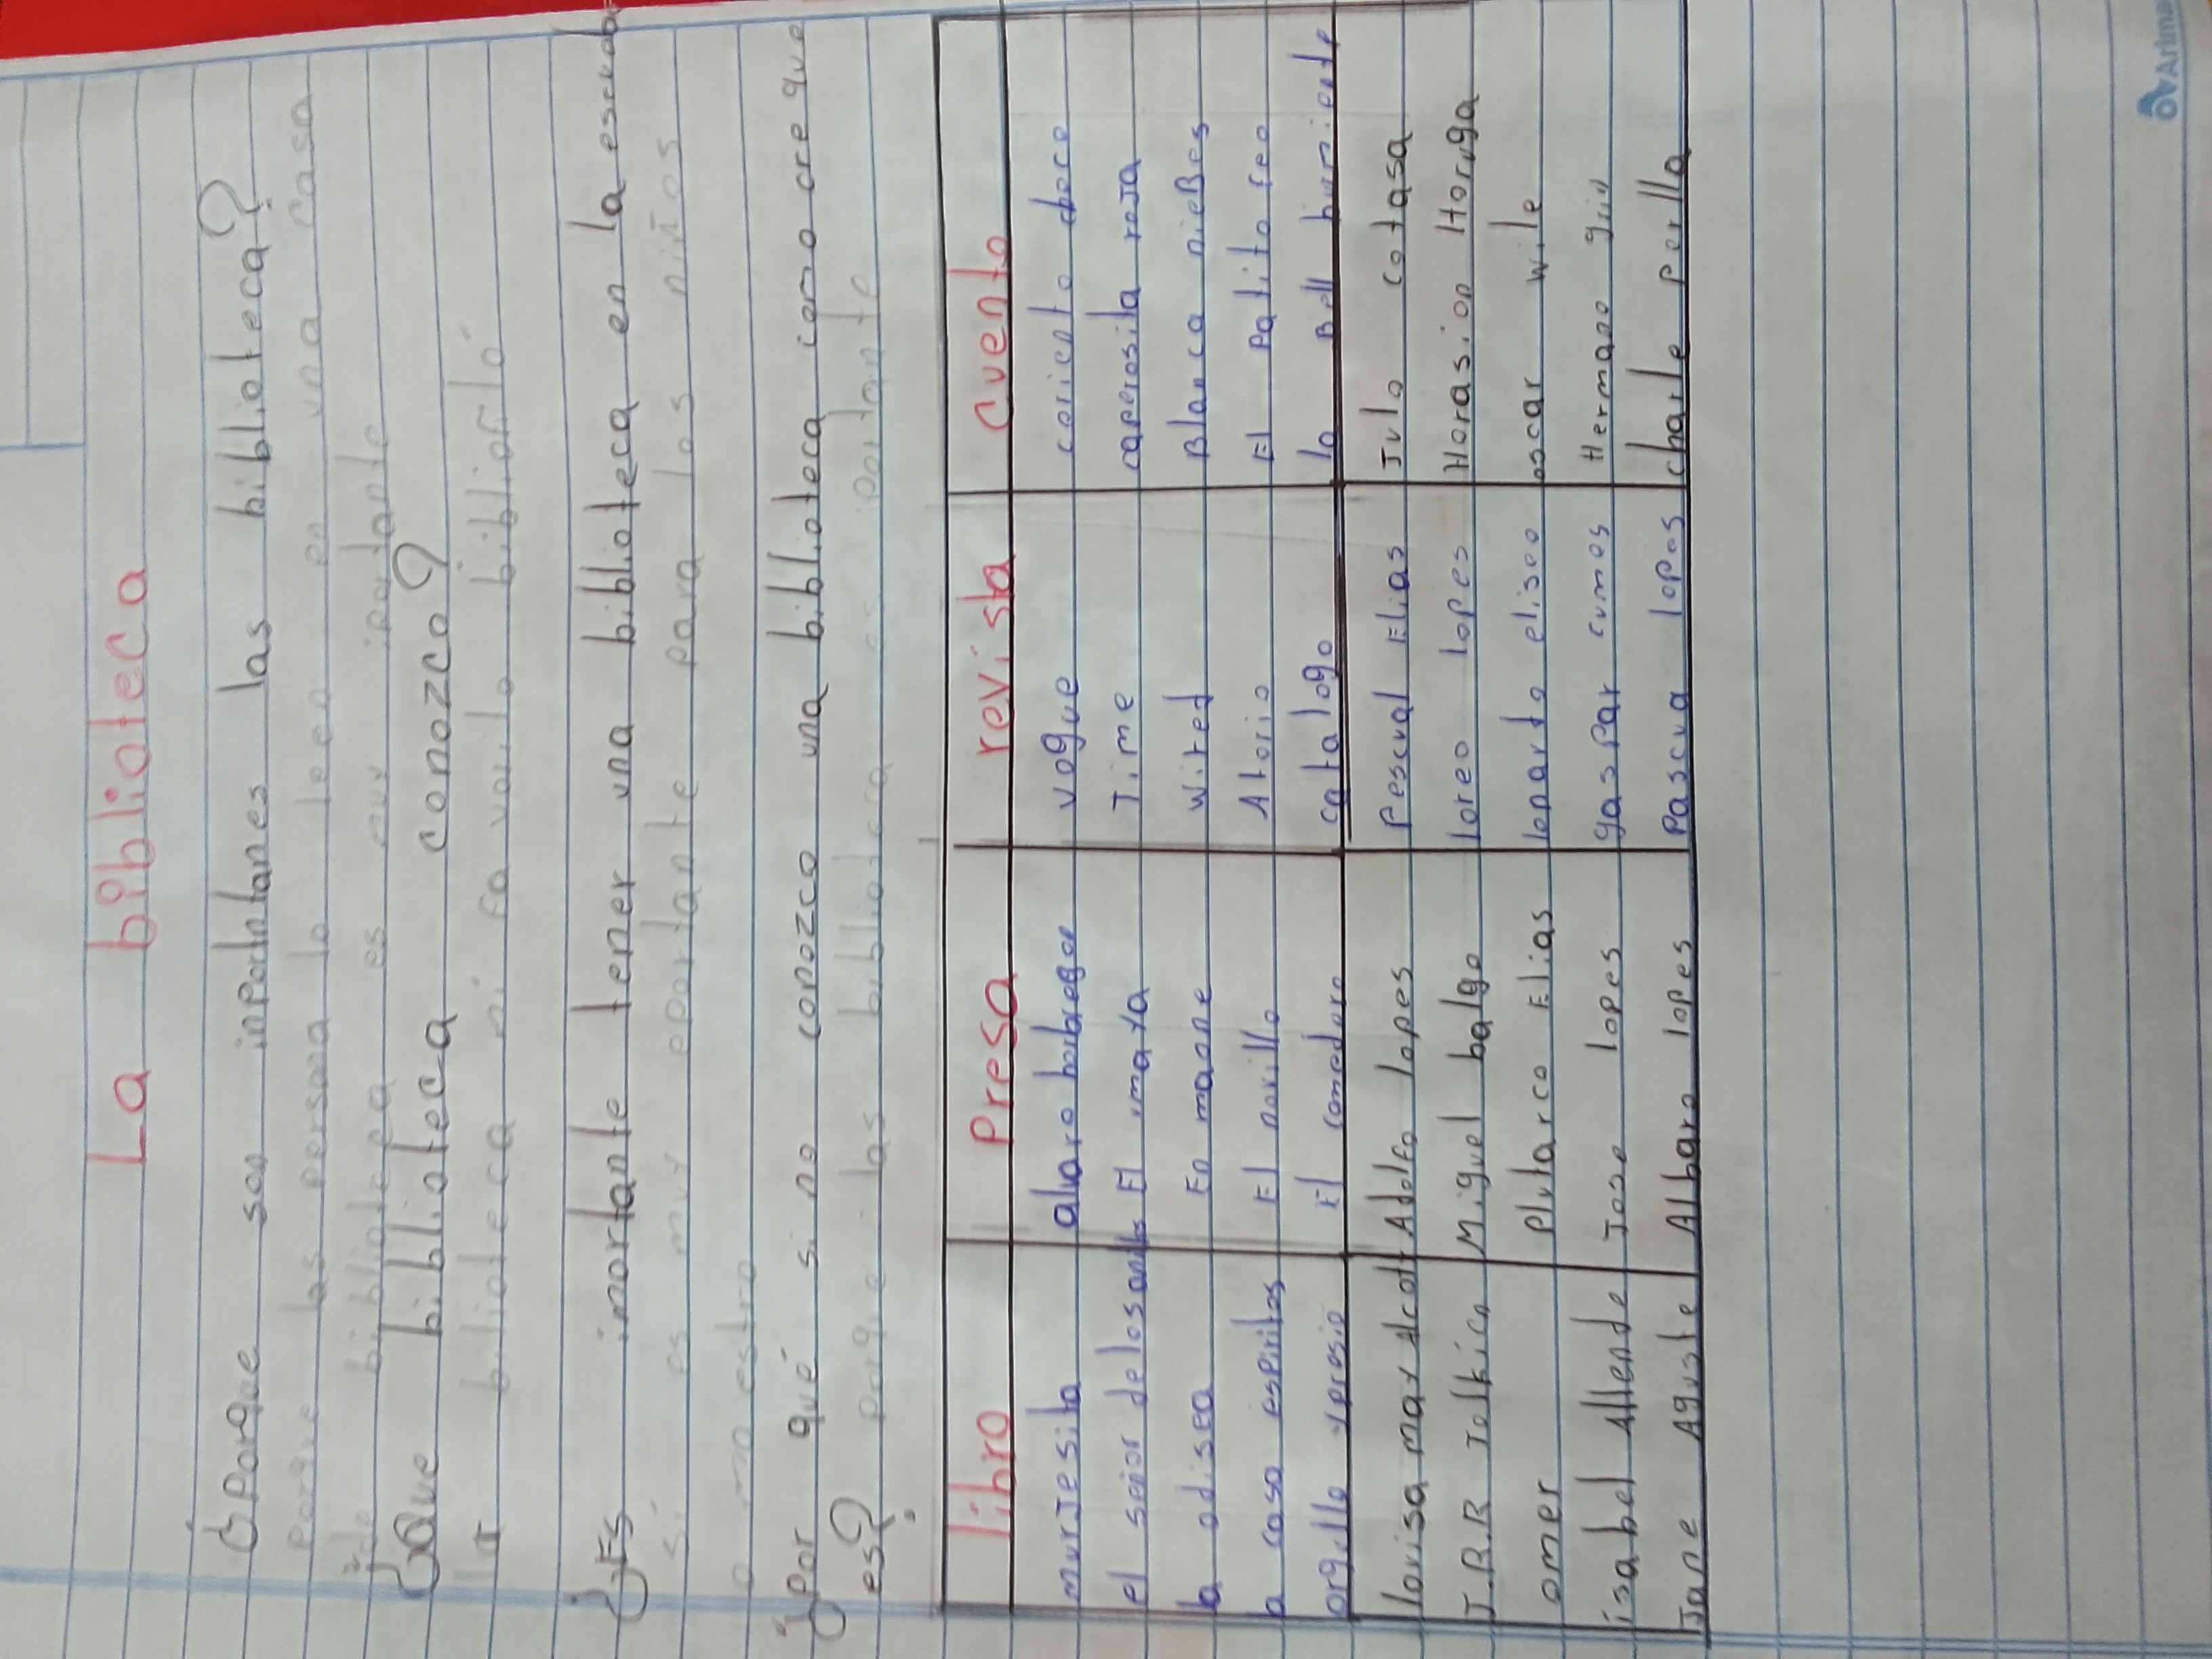 La biblioteca
¿Porque son inportntanes las biblioteca?
porque las persona lo leen en una casa
bibliotepa es muy iportante
¿Que biblioteca conozco?
la biblioteca mi favorito
¿Es imortante tener una biblioteca en la escuela
si es muy eportante para los niños
o maestro
¿por qué si no conozco una biblioteca como cre que
es?
porque las biblioteca es portante
libro Presa revista cuento
murjesita alvaro vogue
el señor delosanils El maya Time caperosita roja
la odisea En maone Wired Blanca nieBes
a casa espiritos El novillo Atorio El Patito feo
orgullo ypresio El comedoro catalogo la Bell
lovisa may Alcott Adolfo lopes Pescual Elias Julo cotasa
J.R.R Tolkien Miguel balgo loreo lopes Horasion Horuga
omer plutarco Elias lonardo eliseo oscar wile
isabel Allende Jose lopes gaspar cumos Hermano
Jane Aguste Albaro lopes Pascua lopes charle perlla
Arima